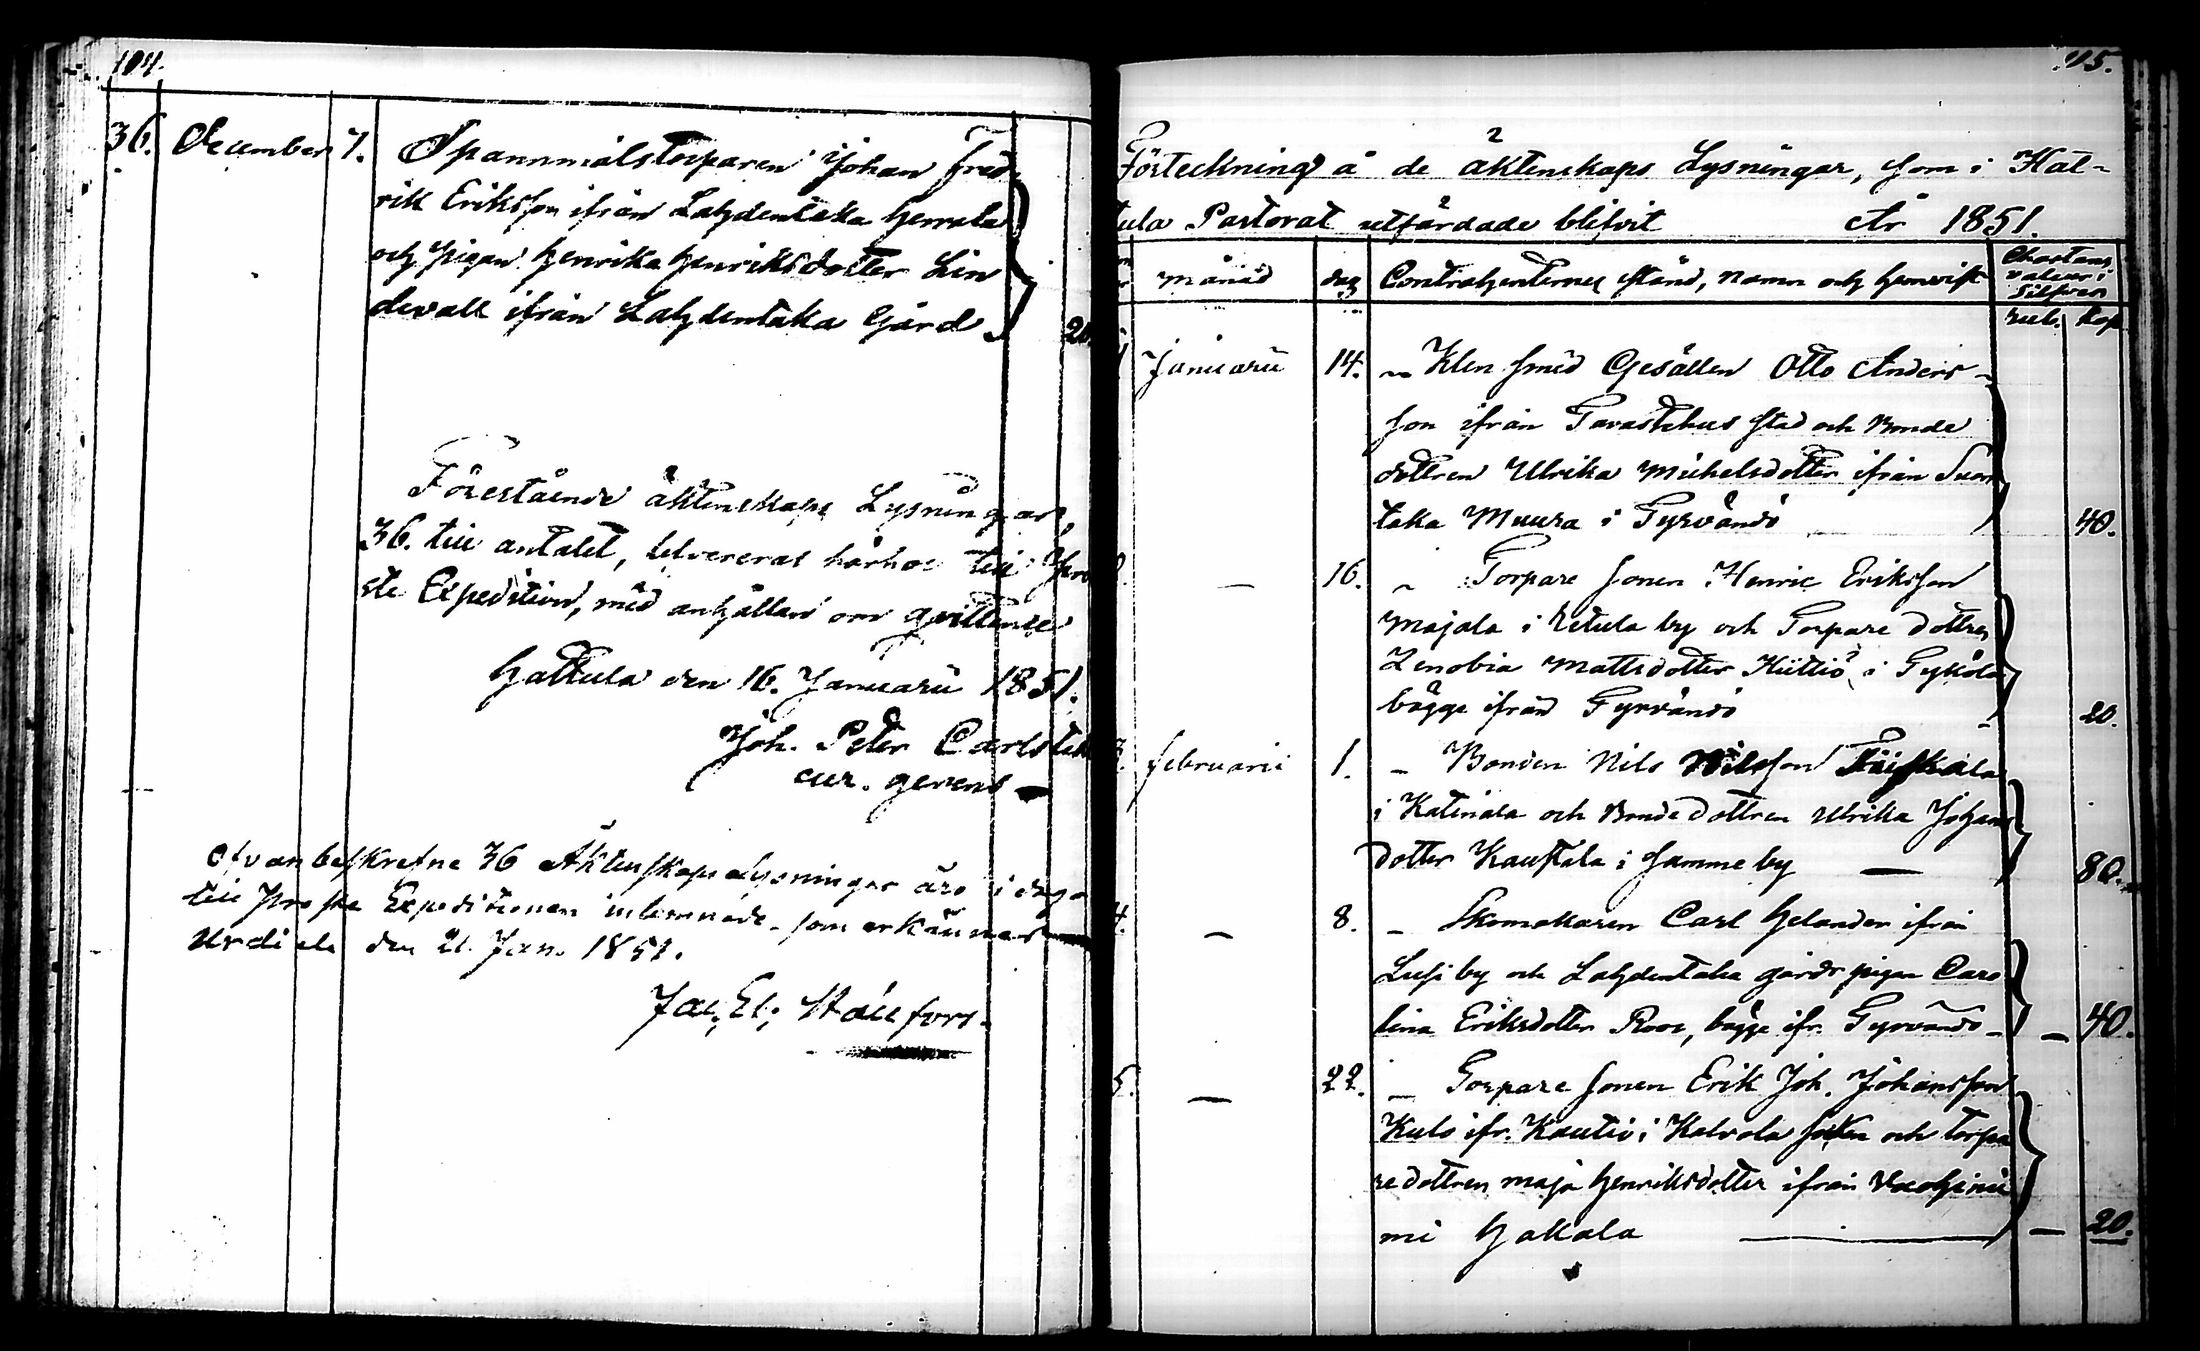 104.
36. December 7. Spannmålstorparen Johan Fred-
rik Eriksson ifrån Lahdentaka Herrala
och pigan Henrika Henriksdotter Lin
devall ifrån Lahdentaka Gård 20
Förestående äktenskaps Lysningar,
36. till antalet, lelvereras härhos till Pro
ste Expedition, med anhållan om qvittence
Hattula den 16. Januarii 1851.
Joh. Peter Carlstedt
cur. gerens
Ofvanbeskrefne 36 Äktenskapslysningar äro i dag
till Proste Expeditionen inlemnade, som erkännes
Urdiala den 21. Jan. 1851.
Jac. El. Hällfors.
105.
Förteckning å de äktenskaps Lysningar, som i Hat-
tula Pastorat utfärdade blifvit År 1851.
månad dag Contrahenternes stånd, namn och hemvist
Silfver
rub. Kop
Januarii 14. Klen smed Gesällen Otto Anders-
son ifrån Tavastehus stad och Bonde
dottren Ulrika Michelsdotter ifrån Suon
taka Muura i Tyrvändö 40.
2. — 16. Torpare sonen Henric Eriksson
Majala i Retula by och Torpare dottren
Zenobia Mattsdotter Kiitiö i Tykölä
bägge ifrån Tyrvändö 20.
3. Februarii 1. Bonden Nils Nilsson
i Katinala och Bondedottren Ulrika Johans
dotter Kauppala i samme by — 80.
4. — 8. Skomakaren Carl Helander ifrån
Lusi by och Lahdentaka gårds pigan Caro
lina Eriksdotter Roos, bägge ifr. Tyrvändö — 40.
5. — 22. Torpare sonen Erik Joh. Johansson
Kulo ifr. Kautio i Kalvola socken och torpa
re dottren Maja Henriksdotter ifrån Vuohinie
mi Hakala — 20.